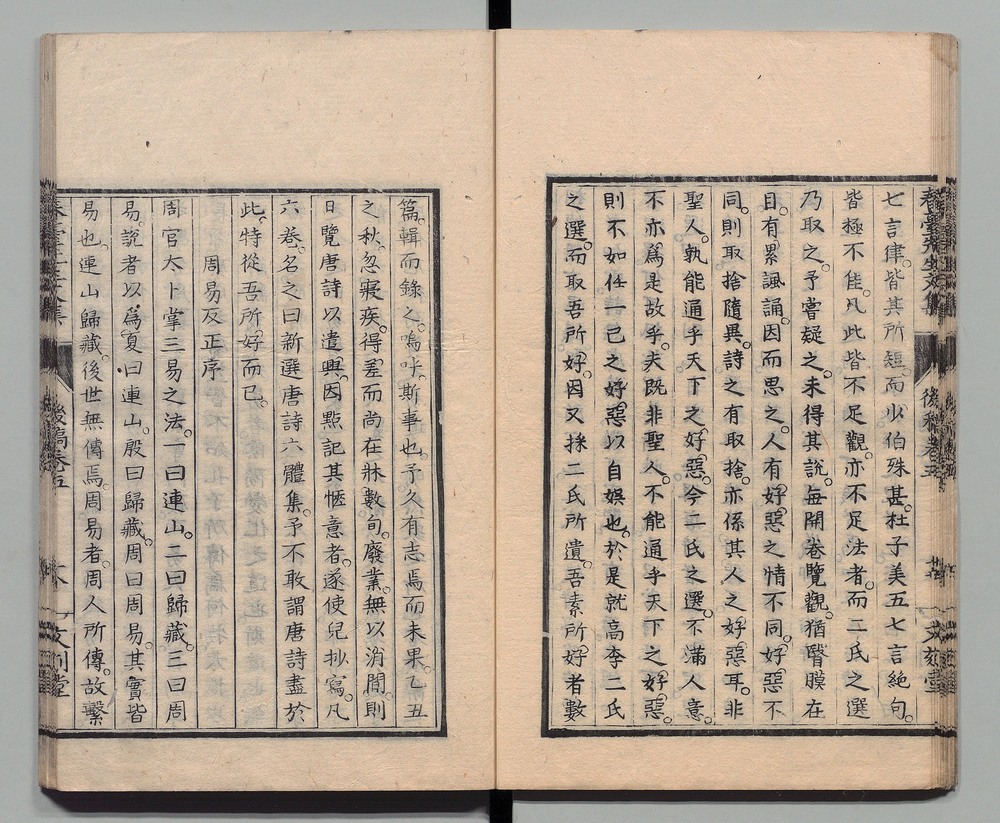 七言律。皆其所短。而少伯殊甚。杜子美五七言絶句。
皆極不佳。凡此皆不足觀。亦不足法者。而二氏之選
乃取之。予嘗疑之。未得其說。每開卷覽觀。猶瞖膜在
目。有累諷誦。因而思之。人有好惡之情不同。好惡不
同。則取捨隨異。詩之有取捨。亦係其人之好惡耳。非
聖人。孰能通乎天下之好惡。今二氏之選。不滿人意。
不亦爲是故乎。夫既非聖人。不能通乎天下之好惡。
則不如任一己之好惡以自娯也。於是就高李二氏
之選。而取吾所好。因又採二氏所遺。吾素所好者數
篇。輯而錄之。嗚呼。斯事也。予久有志焉而未果。乙丑
之秋。忽寢疾。得差而尚在牀數旬。廢業。無以消間。則
日覽唐詩以遣興。因點記其愜意者。遂使兒抄寫。凡
六卷。名之曰新選唐詩六體集。予不敢謂唐詩盡於
此。特從吾所好而已。
周易反正序
周官大卜掌三易之法。一曰連山。二曰歸藏。三曰周
易。說者以爲夏曰連山。殷曰歸藏。周曰周易。其實皆
易也。連山歸藏。後世無傳焉。周易者。周人所傳。故繫
春臺先生文集
後稿卷五
文刻堂